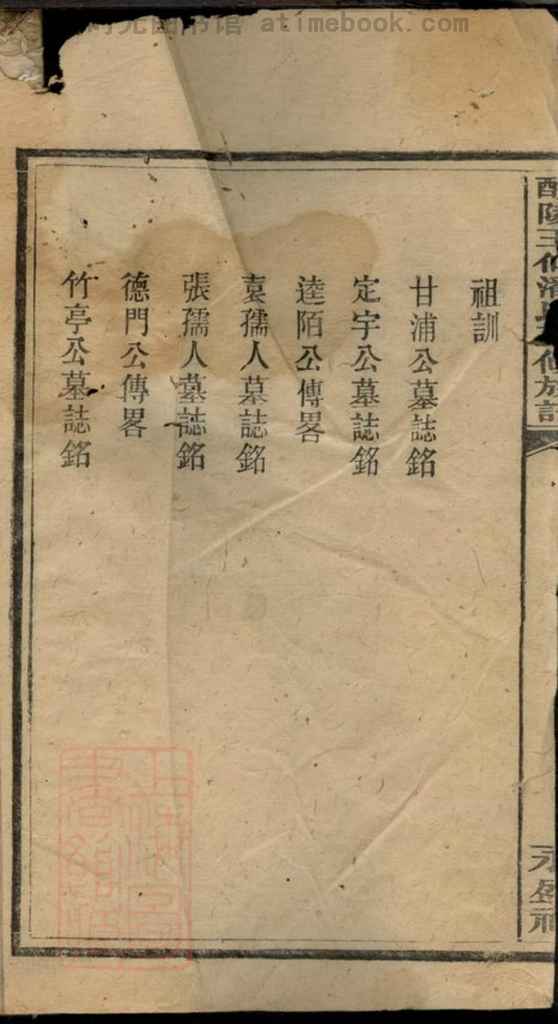 时光图书馆 atimebook.com
祖訓
甘浦公墓誌銘
定宇公墓誌銘
逵陌公傳畧
袁孺人墓誌銘
張孺人墓誌銘
德門公傳畧
竹亭公墓誌銘